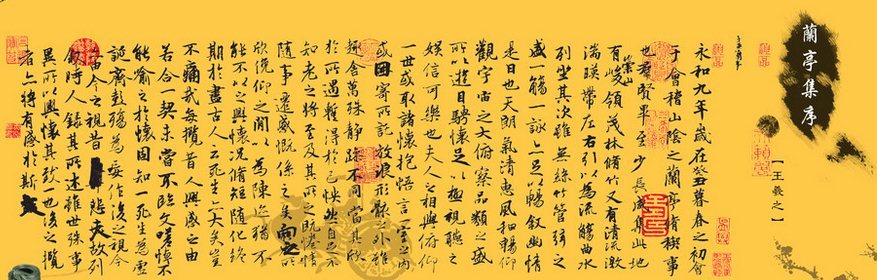 蘭亭集序
【王羲之】
永和九年歲在癸丑暮春之初會
于會稽山陰之蘭亭脩禊事
也羣賢畢至少長咸集此地
有崇山峻領茂林脩竹又有清流激
湍暎帶左右引以為流觴曲水
列坐其次雖無絲竹管弦之
盛一觴一詠亦足以暢敘幽情
是日也天朗氣清惠風和暢仰
觀宇宙之大俯察品類之盛
所以遊目騁懷足以極視聽之
娛信可樂也夫人之相與俯仰
一世或取諸懷抱悟言一室之內
或因寄所託放浪形骸之外雖
趣舍萬殊靜躁不同當其欣
於所遇暫得於己怏然自足不
知老之將至及其所之既惓情
隨事遷感慨係之矣向之所
欣俛仰之閒以為陳迹猶不
能不以之興懷況脩短隨化終
期於盡古人云死生亦大矣豈
不痛哉每攬昔人興感之由
若合一契未嘗不臨文嗟悼不
能喻之於懷固知一死生為虛
誕齊彭殤為妄作後之視今
亦由今之視昔悲夫故列
敘時人錄其所述雖世殊事
異所以興懷其致一也後之攬
者亦將有感於斯文